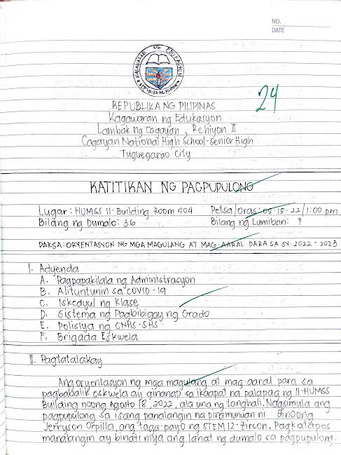 NO.
DATE
24
REPUBLIKA NG PILIPINAS
Kagawaran ng Edukasyon
Lambak ng Cagayan, Rehiyon II
Cagayan National High School-Senior High
Tuguegarao City
KATITIKAN NG PAGPUPULONG
Lugar: HUMSS 11-Building Room 404 Petsa/Oras: 05-18-22/1:00 pm
Bilang ng Dumalo: 36 Bilang ng Lumiban: ?
PAKSA: ORYENTASYON NG MGA MAGULANG AT MAG-AARAL PARA SA SY. 2022-2023
I. Adyenda
A. Pagpapakilala ng Administrasyon
B. Alituntunin sa COVID-19
C. Iskedyul ng Klase
D. Sistema ng Pagbibigay ng Grado
E. Polisiya ng CNHS-SHS
F. Brigada Eskwela
II. Pagtatalakay
Ang oryentasyon ng mga magulang at mag aaral para sa
pagbabalik eskwela ay ginanap sa ikaapat na palapag ng 11-HUMSS
Building noong Agosto 18, 2022, ala una ng tanghali. Nagsimula ang
pagpupulong sa isang panalangin na pinamunuan ni Ginoong
Jerryson Orpilla, ang taga payo ng STEM 12-Zircon. Pagkatapos
manalangin ay binati niya ang lahat ng dumalo sa pagpupulong.